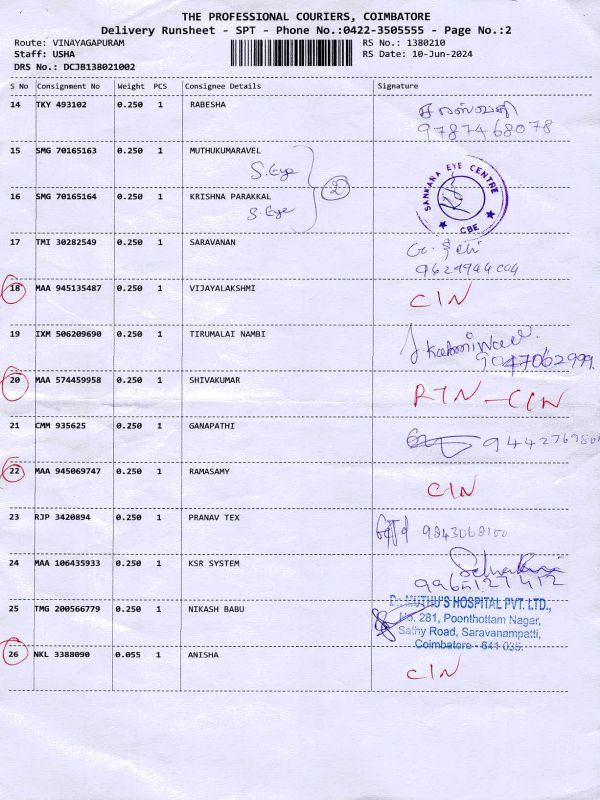 THE PROFESSIONAL COURIERS, COIMBATORE
Delivery Runsheet - SPT - Phone No.:0422-3505555 - Page No.:2
Route: VINAYAGAPURAM RS No.: 1380210
Staff: USHA RS Date: 10-Jun-2024
DRS No.: DCJB138021002
S No Consignment No Weight PCS Consignee Details Signature
14 TKY 493102 0.250 1 RABESHA
9787468078
15 SMG 70165163 0.250 1 MUTHUKUMARAVEL
S.Eye
2
SANKARA EYE CENTRE
CBE
16 SMG 70165164 0.250 1 KRISHNA PARAKKAL
S.Eye
17 TMI 30282549 0.250 1 SARAVANAN
18 MAA 945135487 0.250 1 VIJAYALAKSHMI CIN
19 IXM 506209690 0.250 1 TIRUMALAI NAMBI
9047062999.
20 MAA 574459958 0.250 1 SHIVAKUMAR RTN - CIN
21 CMM 935625 0.250 1 GANAPATHI
22 MAA 945069747 0.250 1 RAMASAMY CIN
23 RJP 3420894 0.250 1 PRANAV TEX 9843068100
24 MAA 106435933 0.250 1 KSR SYSTEM
9965127412
25 TMG 200566779 0.250 1 NIKASH BABU
Dr. MUTHU'S HOSPITAL PVT. LTD.,
No. 281, Poonthottam Nagar,
Sathy Road, Saravanampatti,
Coimbatore - 641 035.
26 NKL 3388090 0.055 1 ANISHA CIN